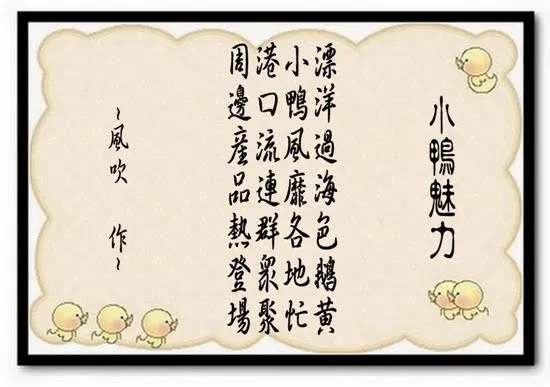 小鴨魅力
漂洋過海色鵝黃
小鴨風靡各地忙
港口流連群眾聚
周邊產品熱登場
~風吹 作~